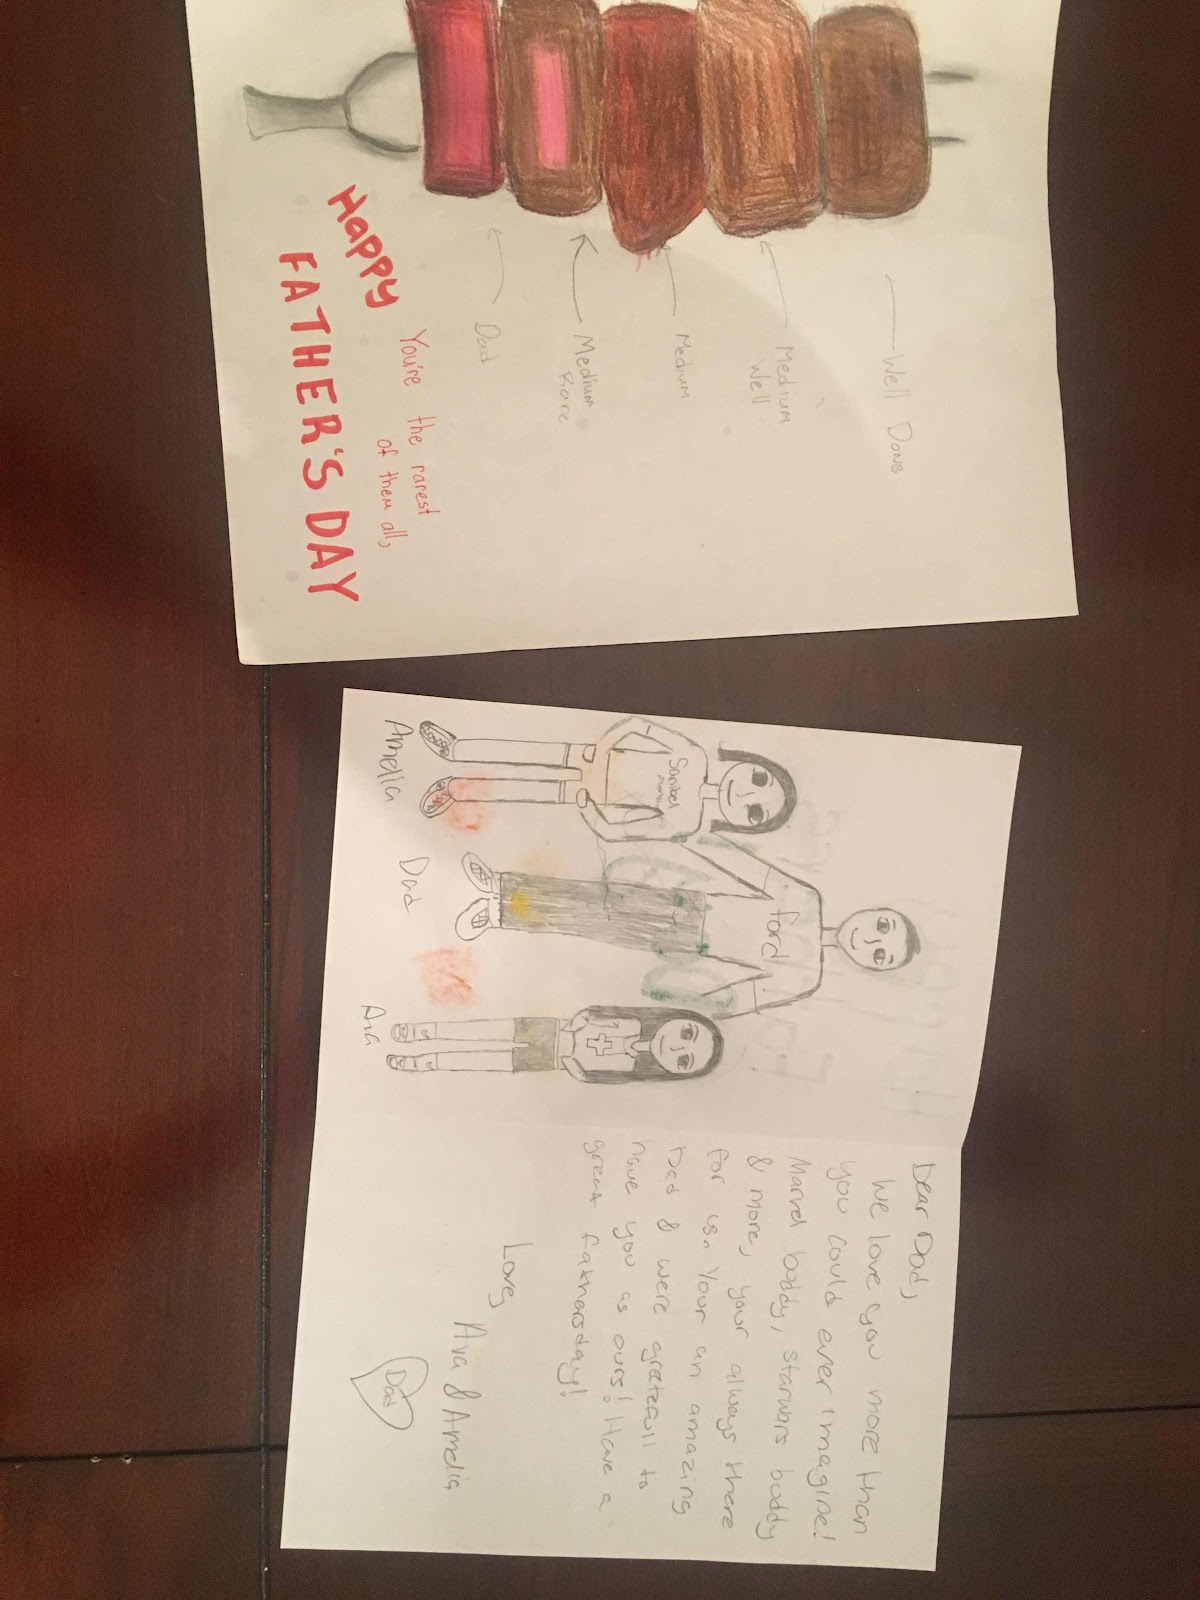 Well Done
Medium
Well
Medium
Medium
Rare
Dad
You're the rarest
of them all,
Happy
FATHER'S DAY
Sanibel
ford
Amelia
Dad
Ava
Dear Dad,
We love you more than
you could ever imagine!
Marvel buddy, starwars buddy
& more, your always there
for us, Your an amazing
Dad & were gratefull to
have you as ours! Have a
great fathersday!
Love,
Ava & Amelia
Dad